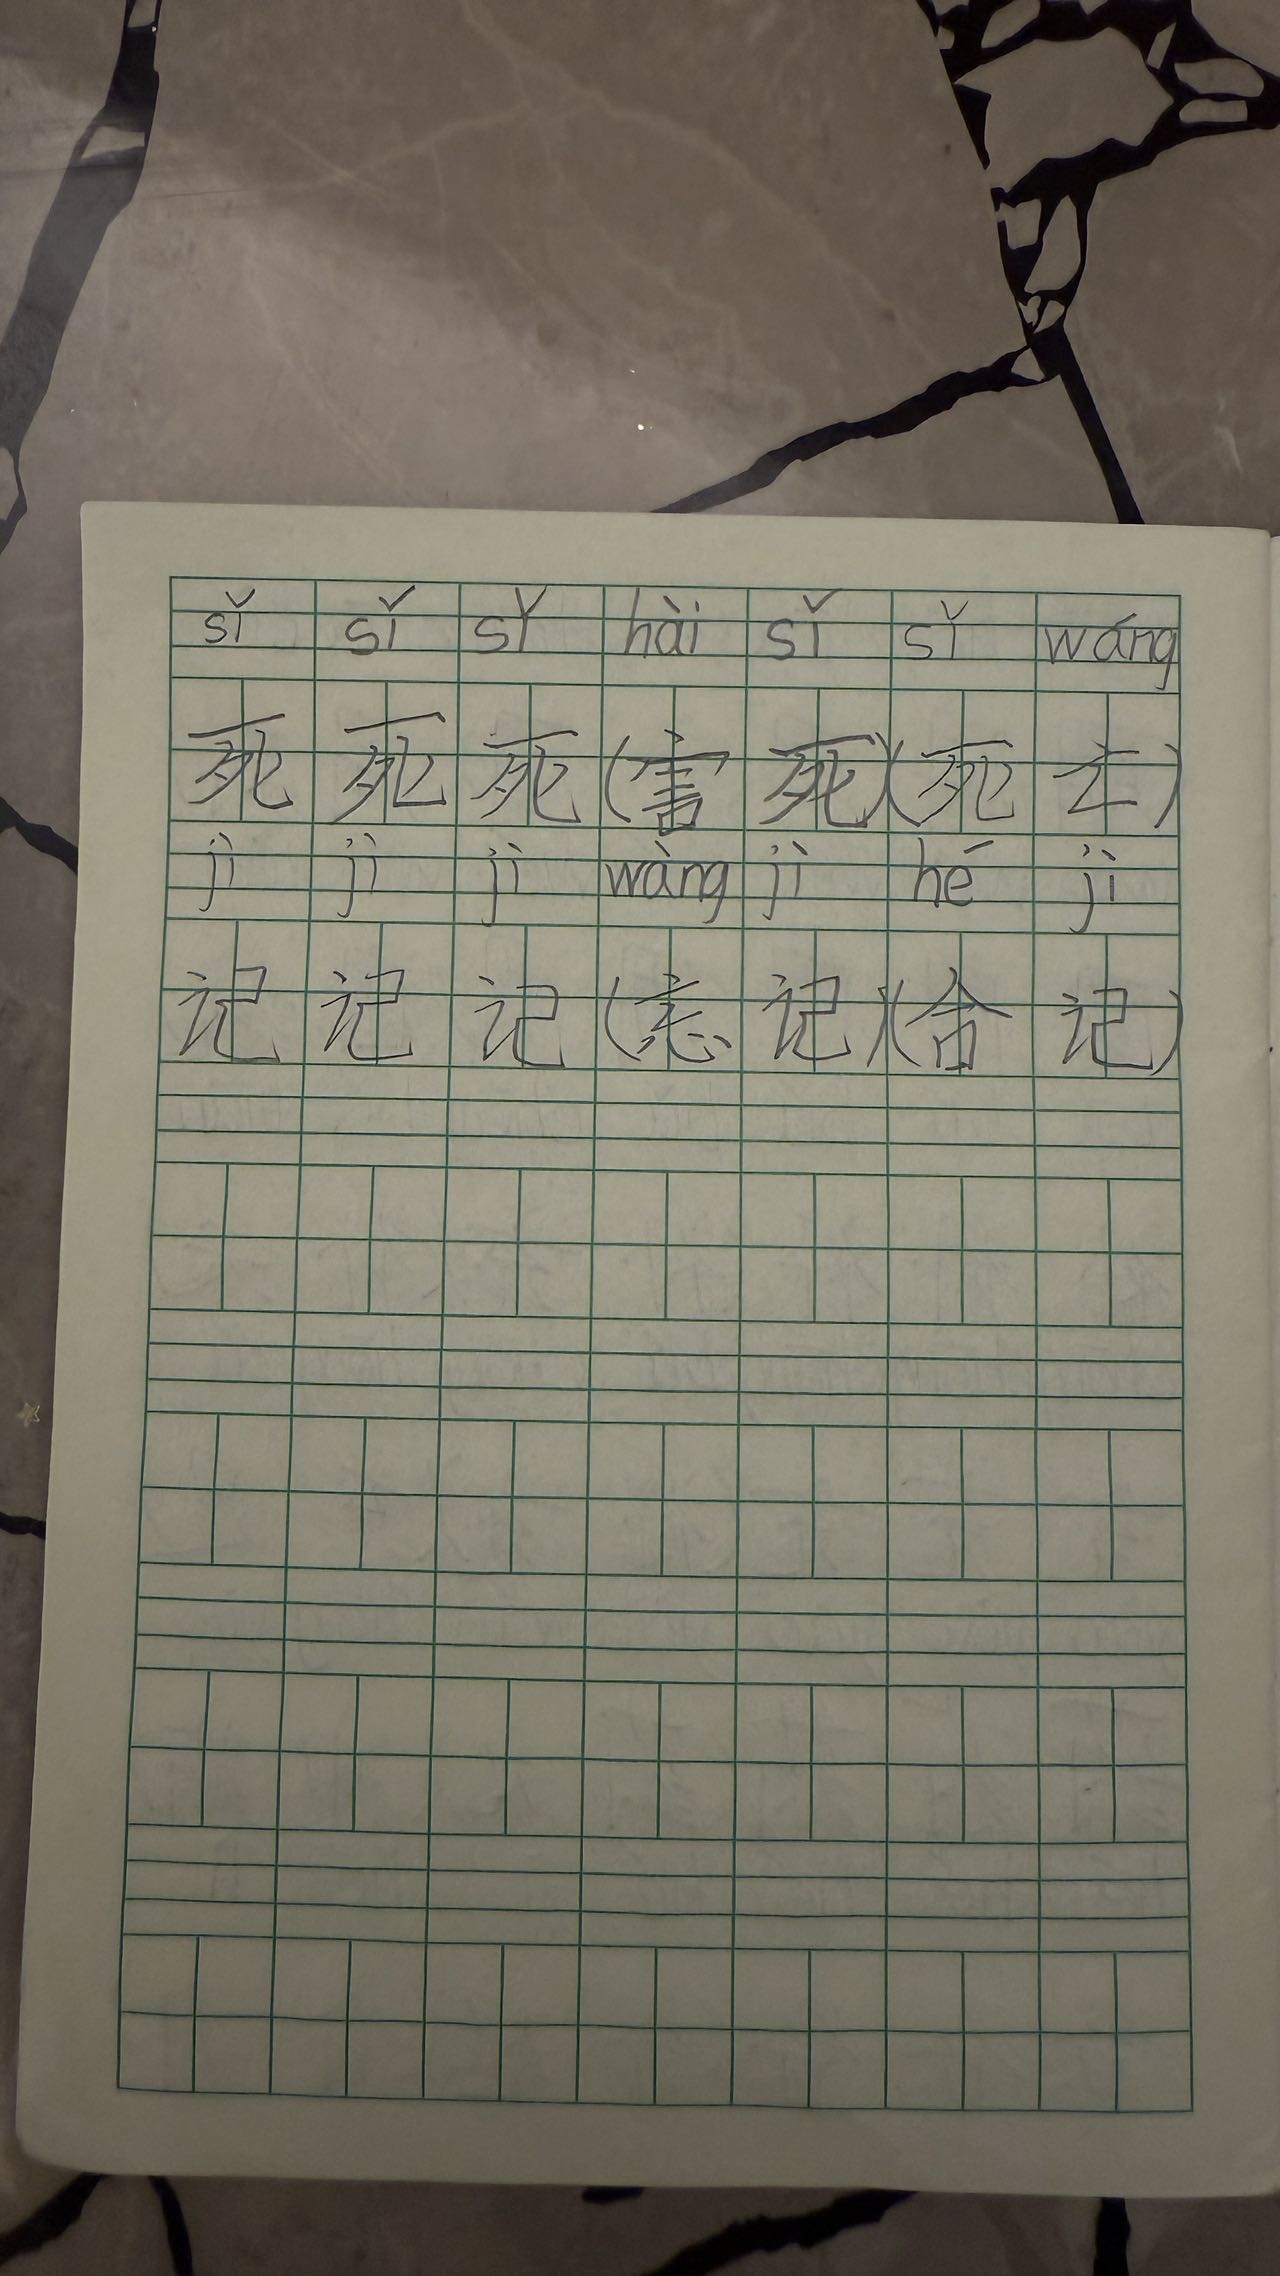 sǐ sǐ sǐ hài sǐ sǐ wáng
死 死 死 (害 死)(死 亡)
jì jì jì wàng jì hé jì
记 记 记 (忘 记)(合 记)